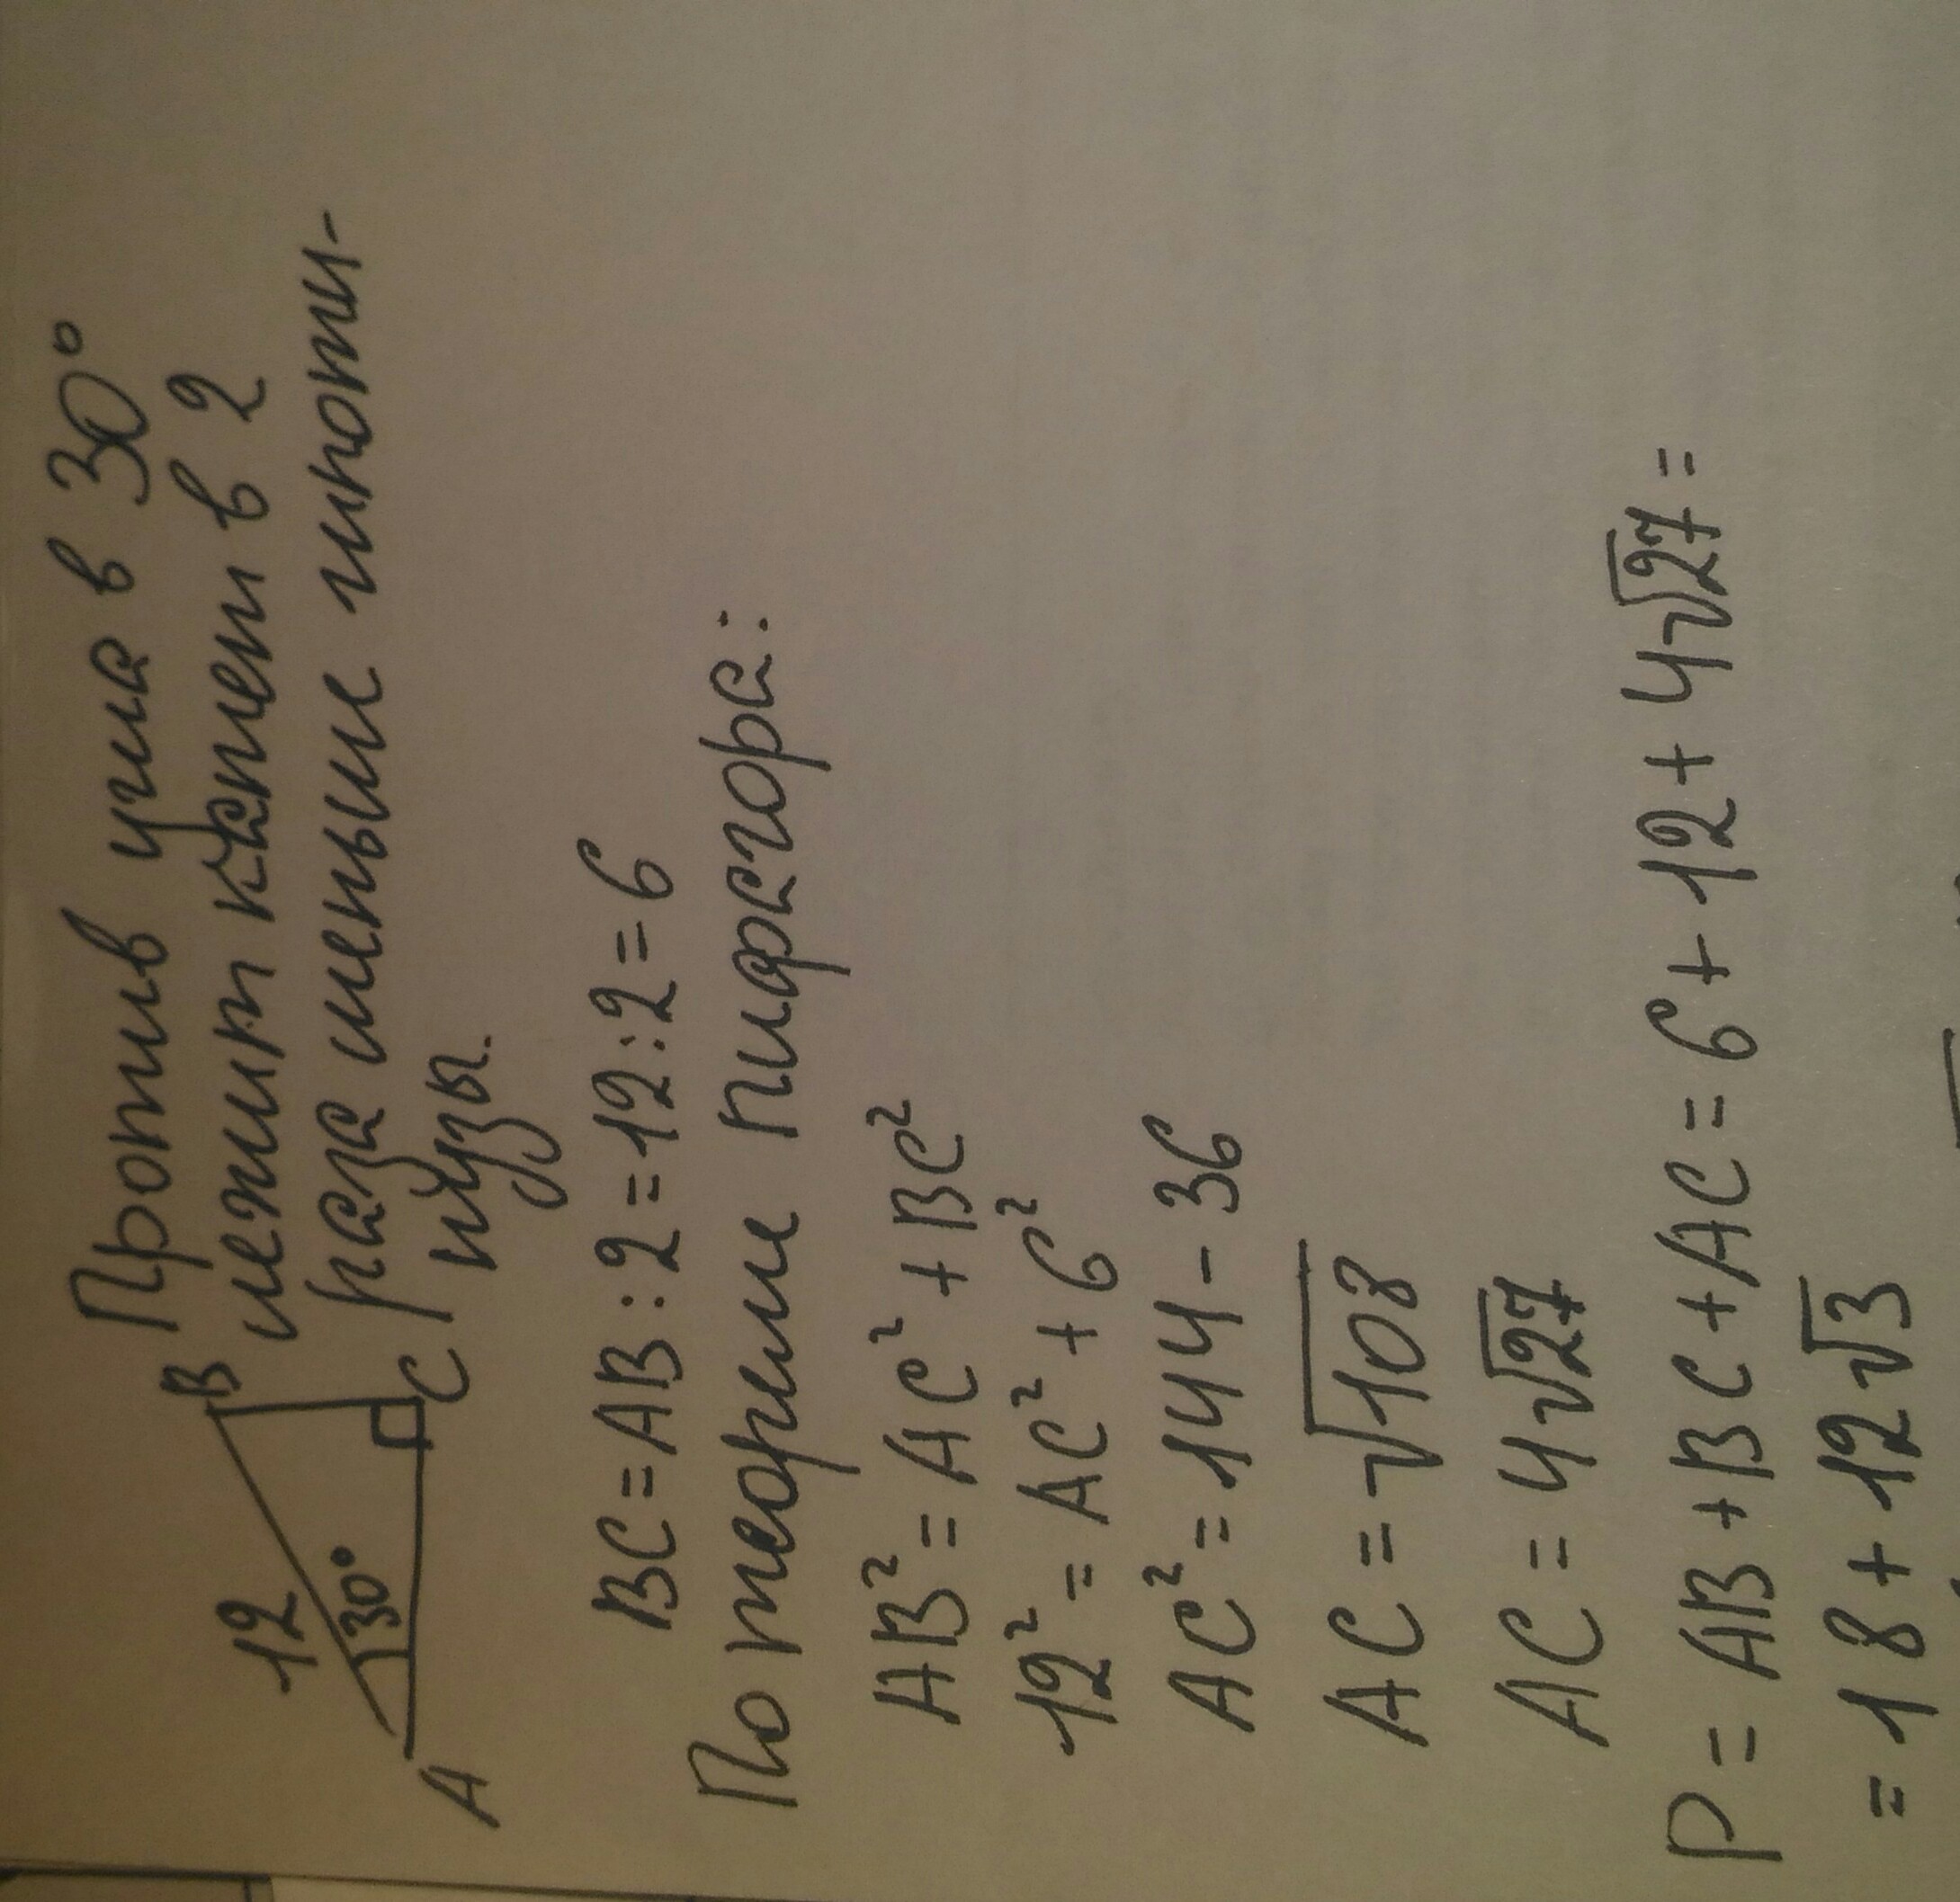 Против угла в 30°
лежит катет в 2
раза меньше гипоте-
нузы.
12
30°
A
B
C
BC = AB : 2 = 12 : 2 = 6
По теореме Пифагора:
AB² = AC² + BC²
12² = AC² + 6²
AC² = 144 - 36
AC = √108
AC = 4√27
P = AB + BC + AC = 6 + 12 + 4√27 =
= 18 + 12√3